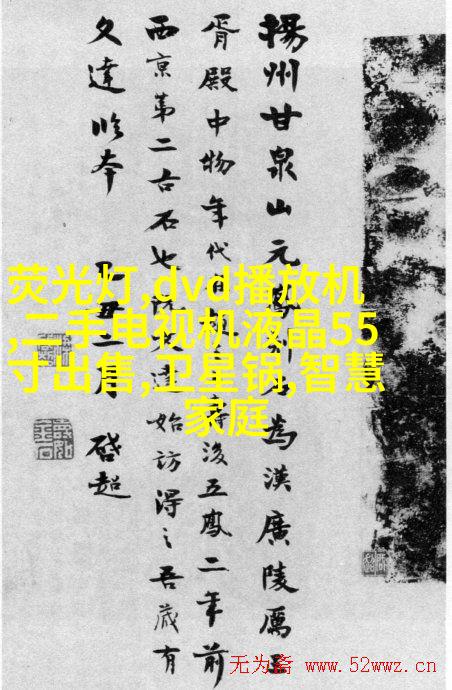 揚州甘泉山元為漢廣陵厲王
胥殿中物年代後五鳳二年前
西京第二古石也達始訪得之吾藏有
文達
本
二月
啓超
荧光灯,dvd播放机
,二手电视机液晶55
寸出售,卫星锅,智慧
家庭
无为斋 www.52wwz.cn